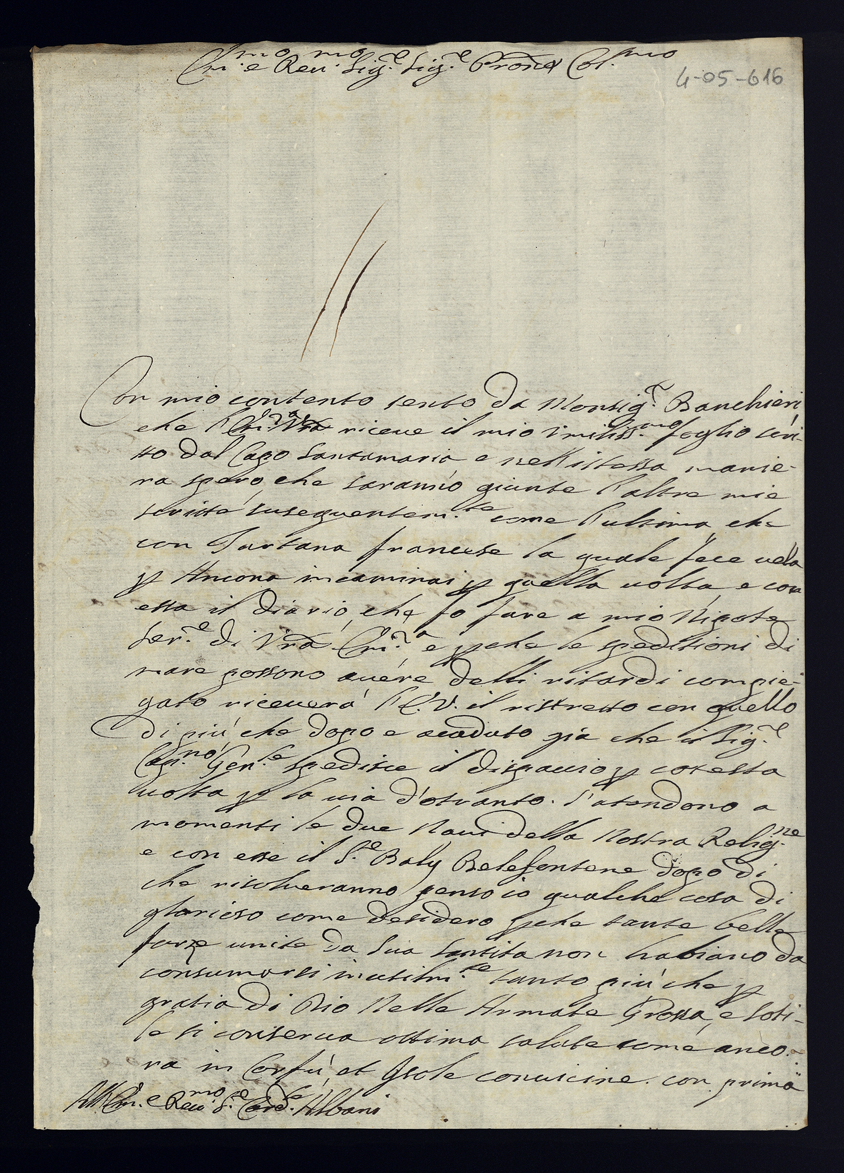 Em.mo e Reu.mo Sig.re Sig.re Prone Col.mo
4-05-616
Con mio contento sento da Monsig.r Banchieri
che l'Em.za Vra riceue il mio umiliss.mo foglio scri-
tto dal Capo Santamaria e nell'istessa manie-
ra spero che saranno giunte l'altre mie
scritte susequentem.te come l'ultima che
con Tartana francese la quale fece vela
p Ancona incaminai p quella uolta e con
essa il diario, che fo fare a mio Nipote
Ser.e di Vra Em.a e pche le speditioni di
mare possono auere delli ritardi compie-
gato riceuerá l'E.V. il ristretto con quello
di piú che dopo e acaduto giá che il Sig.r
Cap.no Gen.le spedisce il dispaccio p cotesta
uolta p la uia d'otranto. S'atendono a
momenti le due Naui della Nostra Relig.ne
e con esse il S.e Balÿ Belefontene dopo di
che risolueranno penso io qualche cosa di
glorioso come desidero pche tante belle
forze unite da Sua Santita non habiano da
consumarsi inutilm.te tanto piú che p
gratia di Dio Nelle Armate Grossa, e Soti-
le si conserua ottima salute come anco-
ra in Corfú et Isole conuicine. con prima
All Em. e Reu.mo S.e Card.le Albani